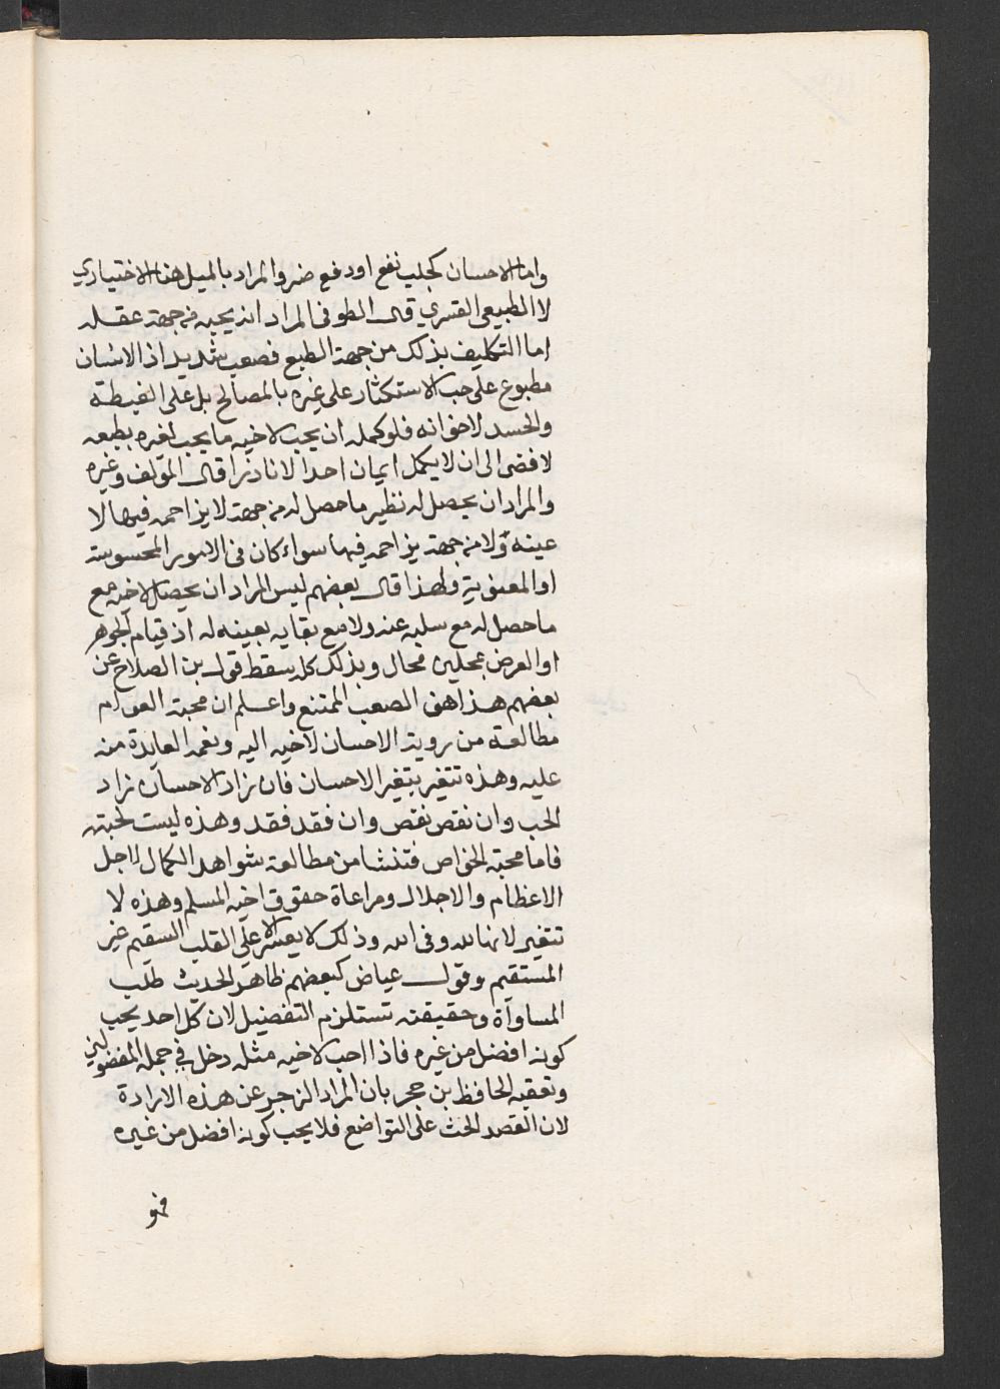 واما الاحسان كجلب نفع او دفع ضر والمراد بالميل هنا الاختياري
لا الطبيعي القسري قال الطوفي المراد انه يحبه من جهة عقله
اما التكليف بذلك من جهة الطبع فصعب شديد اذ الانسان
مطبوع على حب الاستكثار على غيره بالمصالح بل على الغبطة
والحسد لاخوانه فلو كمله ان يحب لاخيه ما يحب لغيره بطبعه
لافضى الى ان لا يكمل ايمان احد الا نادرا قال المؤلف وغيره
والمراد ان يحصل له نظير ما حصل له من جهة لا يزاحمه فيها لا
عينه ولا من جهة يزاحمه فيها سواء كان في الامور المحسوسة
او المعنوية ولهذا قال بعضهم ليس المراد ان يحصل لاخيه مع
ما حصل له مع سلبه عنه ولا مع بقايه بعينه له اذ قيام الجوهر
او العرض بمحلين محال وبذلك كله سقط قول بن الصلاح عن
بعضهم هذا هو الصعب الممتنع واعلم ان محبة العوام
مطالعة من روية الاحسان لاخيه اليه ونعمه العايدة منه
عليه وهذه تتغير بتغير الاحسان فان زاد الاحسان زاد
الحب وان نقص نقص وان فقد فقد وهذه ليست محبة
فاما محبة الخواص فتنشا من مطالعة شواهد الكمال لاجل
الاعظام والاجلال ومراعاة حقوق اخيه المسلم وهذه لا
تتغير لانها لله وفي الله وذلك لا يعسر الا على القلب السقيم غير
المستقيم وقول عياض كبعضهم ظاهر الحديث طلب
المساوآة وحقيقته تستلزم التفضيل لان كل احد يحب
كونه افضل من غيره فاذا احب لاخيه مثله دخل في جملة المفضولين
وتعقبه الحافظ بن حجر بان المراد الزجر عن هذه الارادة
لان القصد الحث على التواضع فلا يحب كونه افضل من غيره
فهو